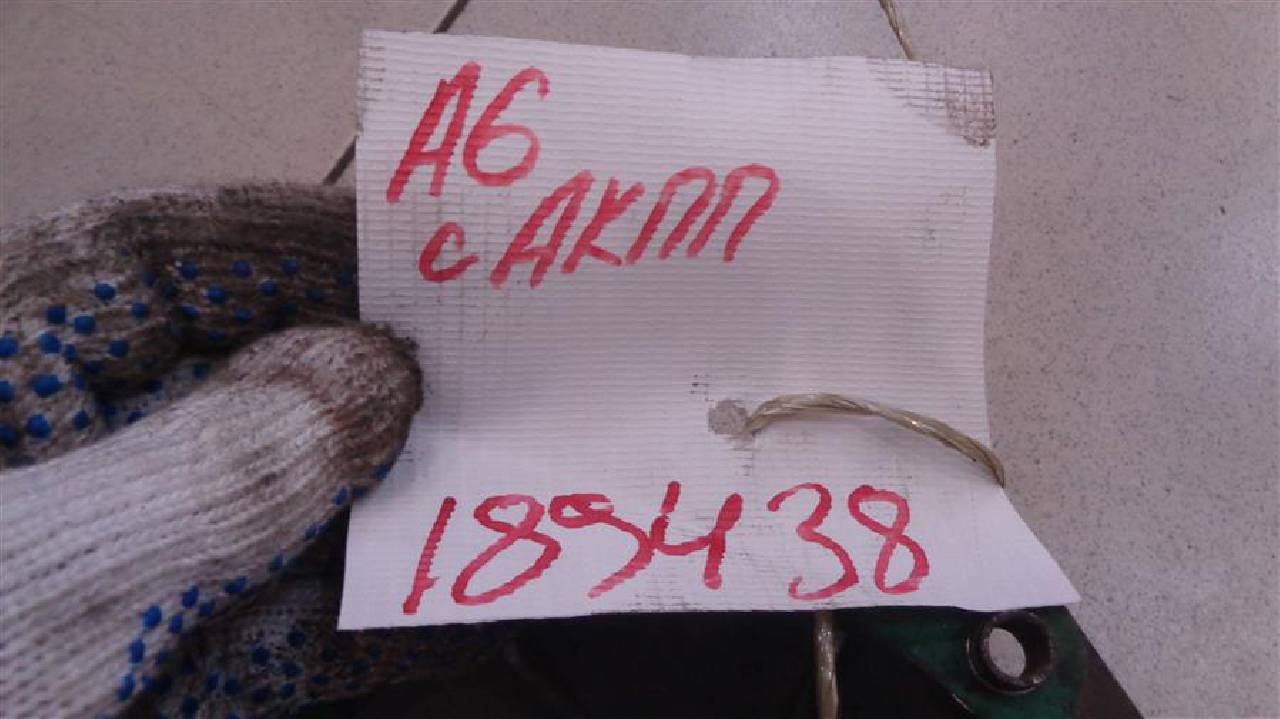 А6
с АКПП
189438